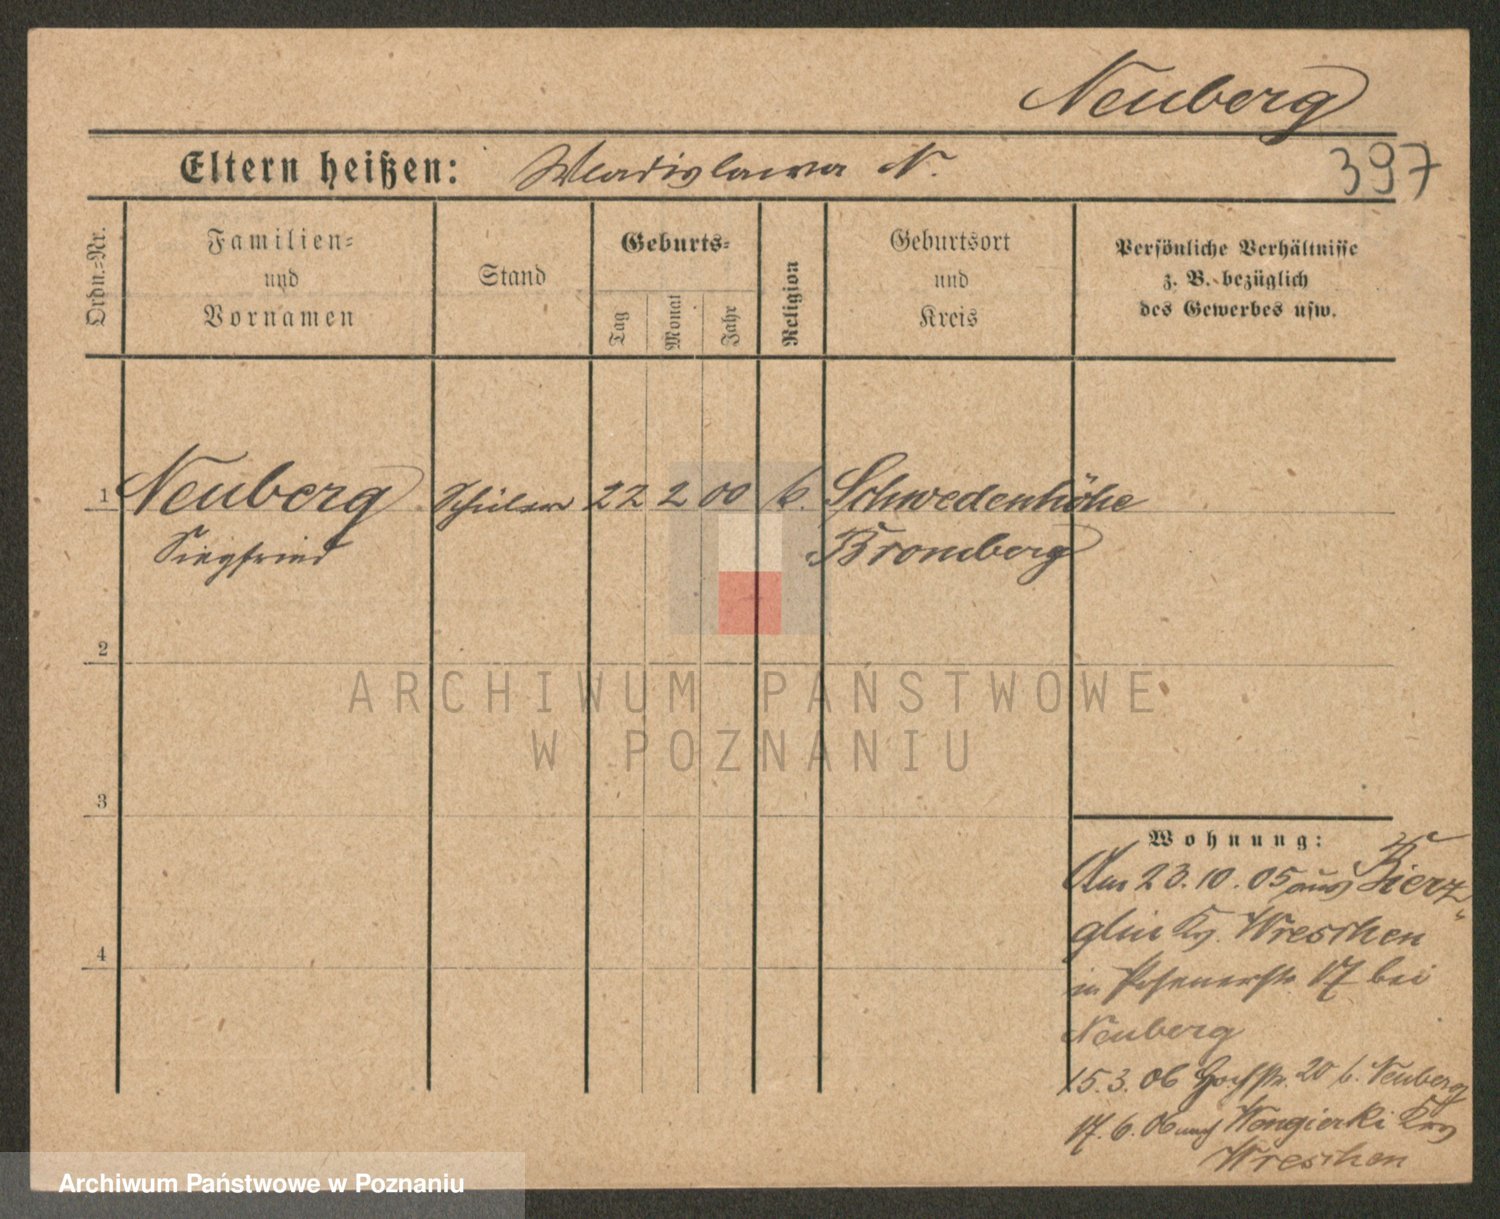 Neuberg
397
Eltern heißen: Wladislawa N.
Ordn.-Nr.
Familien-
und
Vornamen
Stand
Geburts-
Tag
Monat
Jahr
Religion
Geburtsort
und
Kreis
Persönliche Verhältnisse
z. B. bezüglich
des Gewerbes usw.
1 Neuberg Schüler 22 2 00 k. Schwedenhöhe
Siegfried Bromberg
2
3
4
Wohnung:
Am 23.10.05 aus Kierz-
glin Kr. Wreschen
in Posenerstr. 17 bei
Neuberg
15.3.06 20 b. Neuberg
17.6.06 nach Wengierki Krs
Wreschen
ARCHIWUM PAŃSTWOWE
W POZNANIU
Archiwum Państwowe w Poznaniu